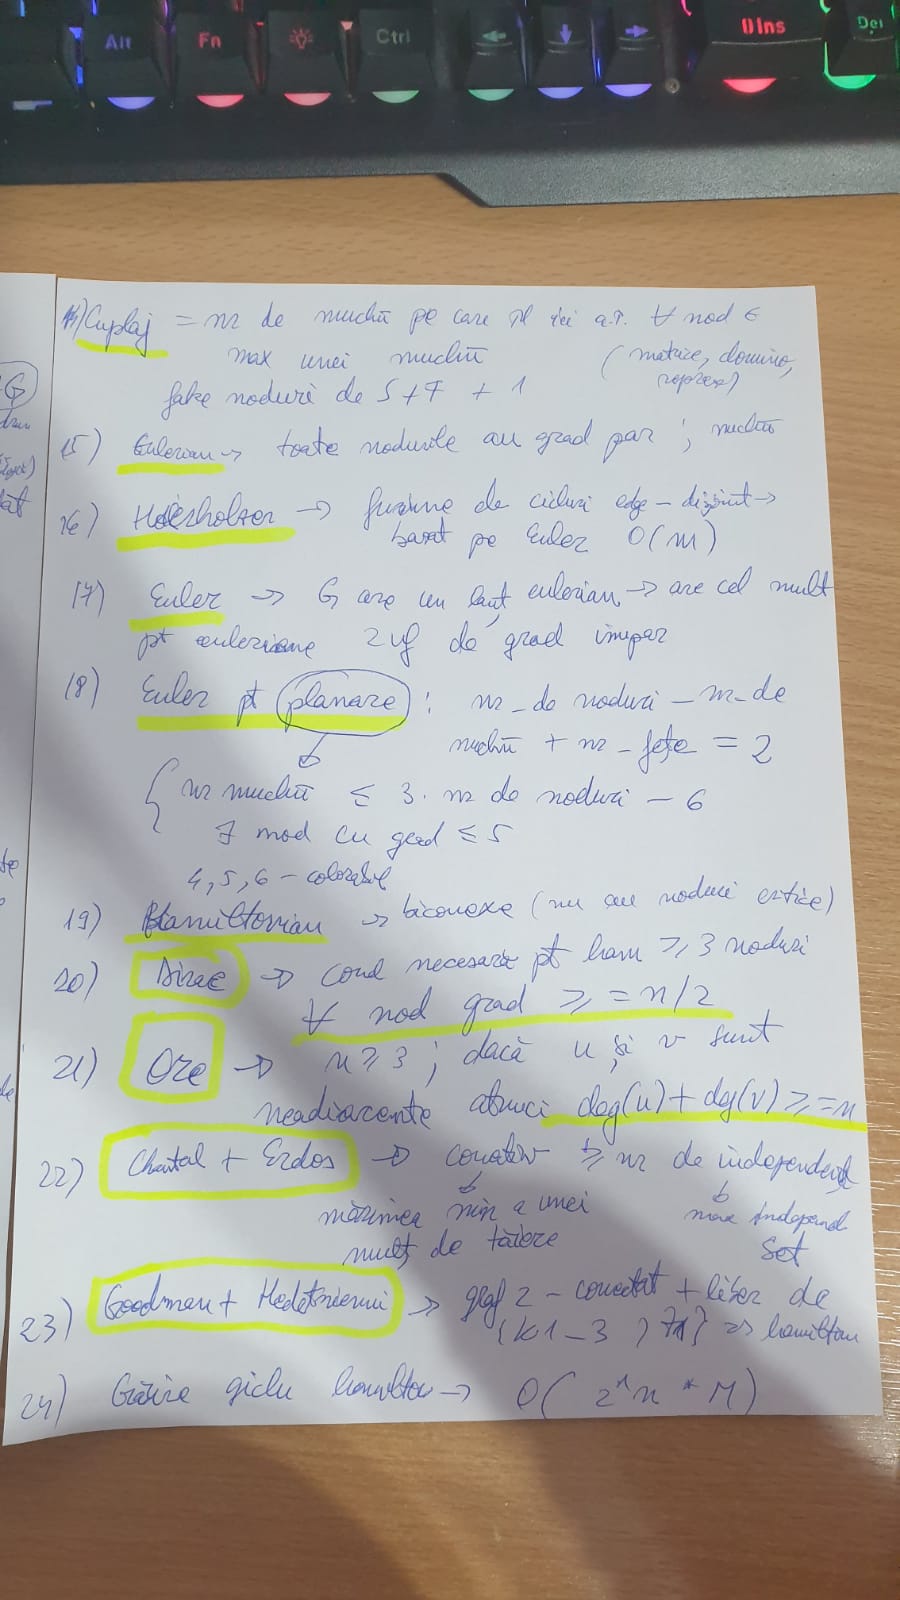 Alt Fn Ctrl Ins Del
Cuplaj = nr de muchii pe care îl iei a.î. ∀ nod ∈
max unei muchii (matrice, domino,
fake noduri de S + T + 1
15) Eulerian → toate nodurile au grad par ; muchii
16) → fuziune de cicluri edge-disjoint →
bazat pe Euler O(m)
17) Euler → G are un lanț eulerian → are cel mult
pt euleriene 2 vf de grad impar
18) Euler pt planare : nr-de noduri - nr-de
muchii + nr-fețe = 2
{ nr muchii ≤ 3. nr de noduri - 6
∃ nod cu grad ≤ 5
4, 5, 6 - colorabil
19) Hamiltonian → biconexe (nu au noduri critice)
20) Dirac → cond necesare pt ham ≥ 3 noduri
∀ nod grad ≥ = n/2
21) Ore → n ≥ 3 ; dacă u și v sunt
neadiacente atunci deg(u) + deg(v) ≥ = n
22) + Erdos → ≥ nr de independență
mărimea min a unei max independ
mulț de tăiere set
23) Goodman + → graf 2 - conectat + liber de
{k1-3 } => hamiltonian
24) Găsire → O( 2^n n * M)
G